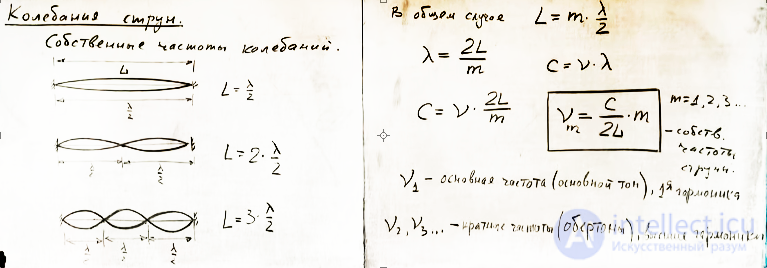 Колебания струн.
Собственные частоты колебаний.
L
λ/2
L = λ/2
λ/2
L = 2 · λ/2
λ/2 λ/2 λ/2
L = 3 · λ/2
В общем случае L = m · λ/2
λ = 2L/m
C = ν · λ
C = ν · 2L/m
ν_m = C/2L · m
m = 1, 2, 3 ...
- собств.
частоты
струны.
ν₁ – основная частота (основной тон), 1я гармоника
ν₂, ν₃ ... – кратные частоты (обертоны), гармоники
intellect.icu
Искусственный разум